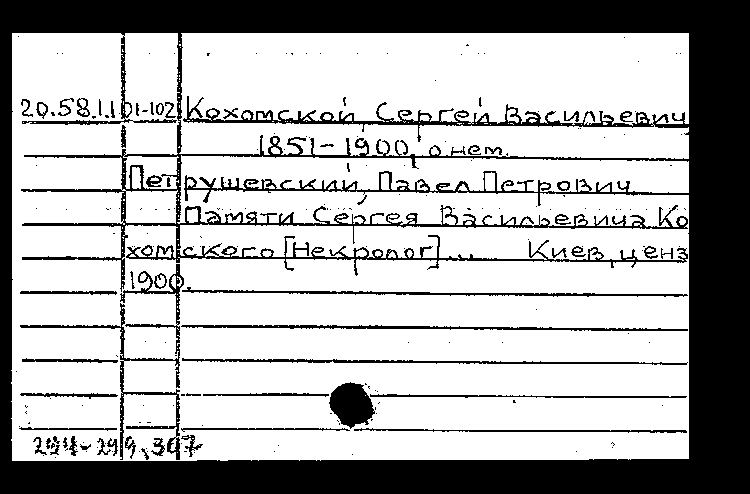 20.58.1.1 01-102 Кохомской, Сергей Васильевич
1851-1900, о нем.
Петрушевский, Павел Петрович
Памяти Сергея Васильевича Ко
хомского [Некролог]... Киев, ценз
1900.
294-299, 307